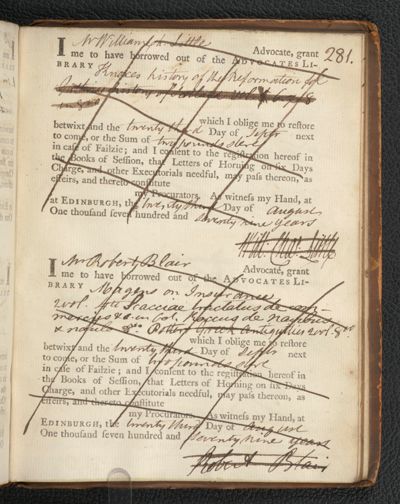 281.
I Mr William Ch. Little Advocate, grant
me to have borrowed out of the ADVOCATES LI-
BRARY Knoxes history of the Reformation fol
history of
which I oblige me to reſtore
betwixt and the twenty third Day of Septr next
to come, or the Sum of two pounds sterl
in caſe of Failzie; and I conſent to the regiſtration hereof in
the Books of Seſſion, that Letters of Horning on ſix Days
Charge, and other Executorials needful, may paſs thereon, as
effeirs, and thereto conſtitute
my Procurators. As witneſs my Hand, at
at EDINBURGH, the twenty third Day of August
One thouſand ſeven hundred and seventy nine years
Will: Chas: Little
I Mr Robert Blair Advocate, grant
me to have borrowed out of the ADVOCATES LI-
BRARY Magens on Insurances
2 vol. 4to Stracciae tractatus de
mercatura &c. Roccus de navibus
& naulo 8vo Potters Greek Antiquities 2 vol. 8vo
which I oblige me to reſtore
betwixt and the twenty third Day of Septr next
to come, or the Sum of two pounds sterl
in caſe of Failzie; and I conſent to the regiſtration hereof in
the Books of Seſſion, that Letters of Horning on ſix Days
Charge, and other Executorials needful, may paſs thereon, as
effeirs, and thereto conſtitute
my Procurators. As witneſs my Hand, at
EDINBURGH, the twenty third Day of August
One thouſand ſeven hundred and seventy nine years
Robert Blair